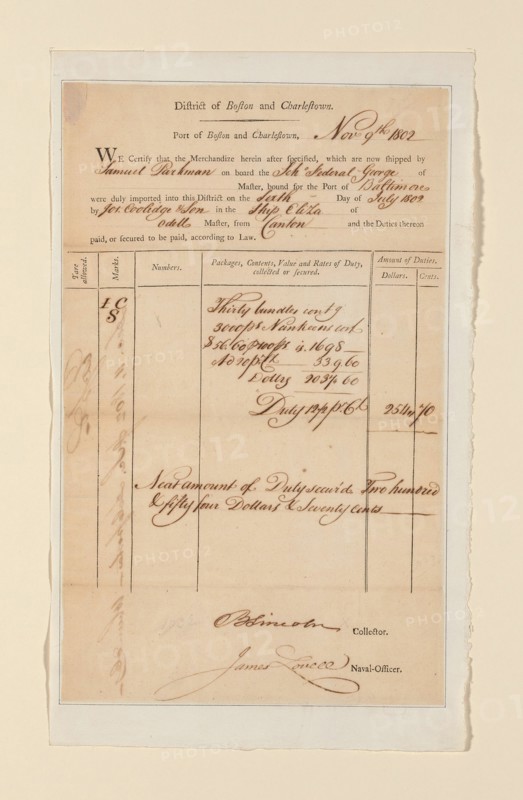 District of Boston and Charlestown.
Port of Boston and Charlestown, Nov 9th 1802
WE Certify that the Merchandize herein after specified, which are now shipped by
Samuel Parkman on board the Schr Federal George of
Master, bound for the Port of Baltimore
were duly imported into this District on the Sixth Day of July 1802
by Jos. Coolidge & Son in the Ship Eliza of
Odell Master, from Canton and the Duties thereon
paid, or secured to be paid, according to Law.
Tare allowed.
Marks.
Numbers.
Packages, Contents, Value and Rates of Duty, collected or secured.
Amount of Duties.
Dollars. Cents.
I C
S
Thirty bundles contg
3000 ps Nankeens cost
$56.60 p 100 ps is 1698
Ad 20 p Ct 339 60
Dollars 2037 60
Duty 12½ p Ct 254 70
Neat amount of Duty secur'd Two hundred
& fifty four Dollars & Seventy Cents
B Lincoln Collector.
James Lovell Naval-Officer.
PHOTO12